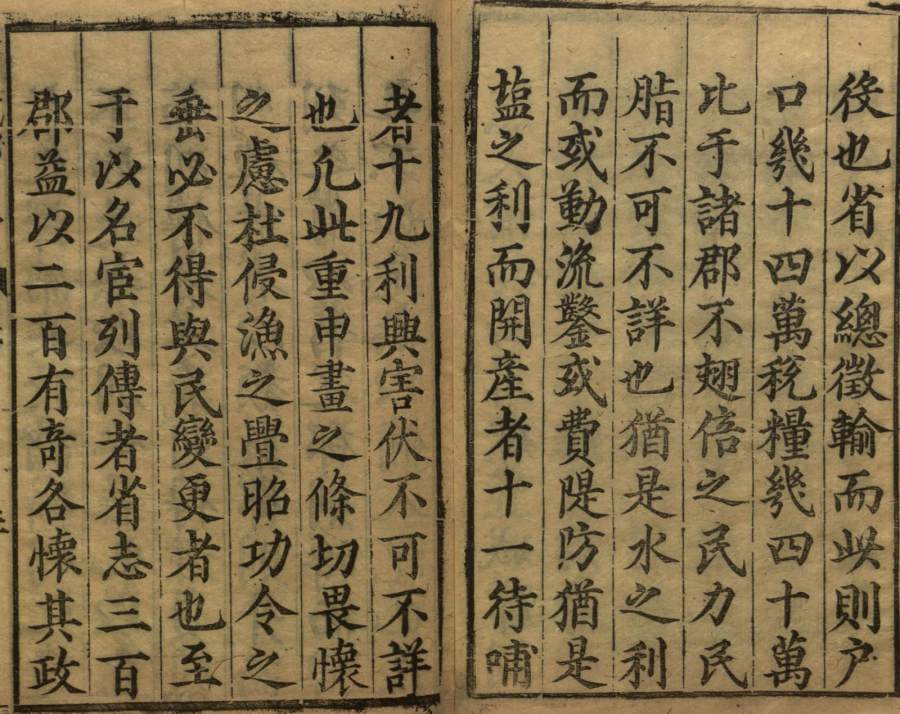 後也省以總徵輸而此則户
口幾十四萬稅糧幾四十萬
比于諸郡不翅倍之民力民
脂不可不詳也猶是水之利
而或動流鑿或費隄防猶是
塩之利而開產者十一待哺
者十九利興害伏不可不詳
也凡此重申畫之條切畏懷
之慮杜侵漁之舋昭功令之
垂必不得與民變更者也至
于以名宦列傳者省志三百
郡益以二百有奇各懷其政